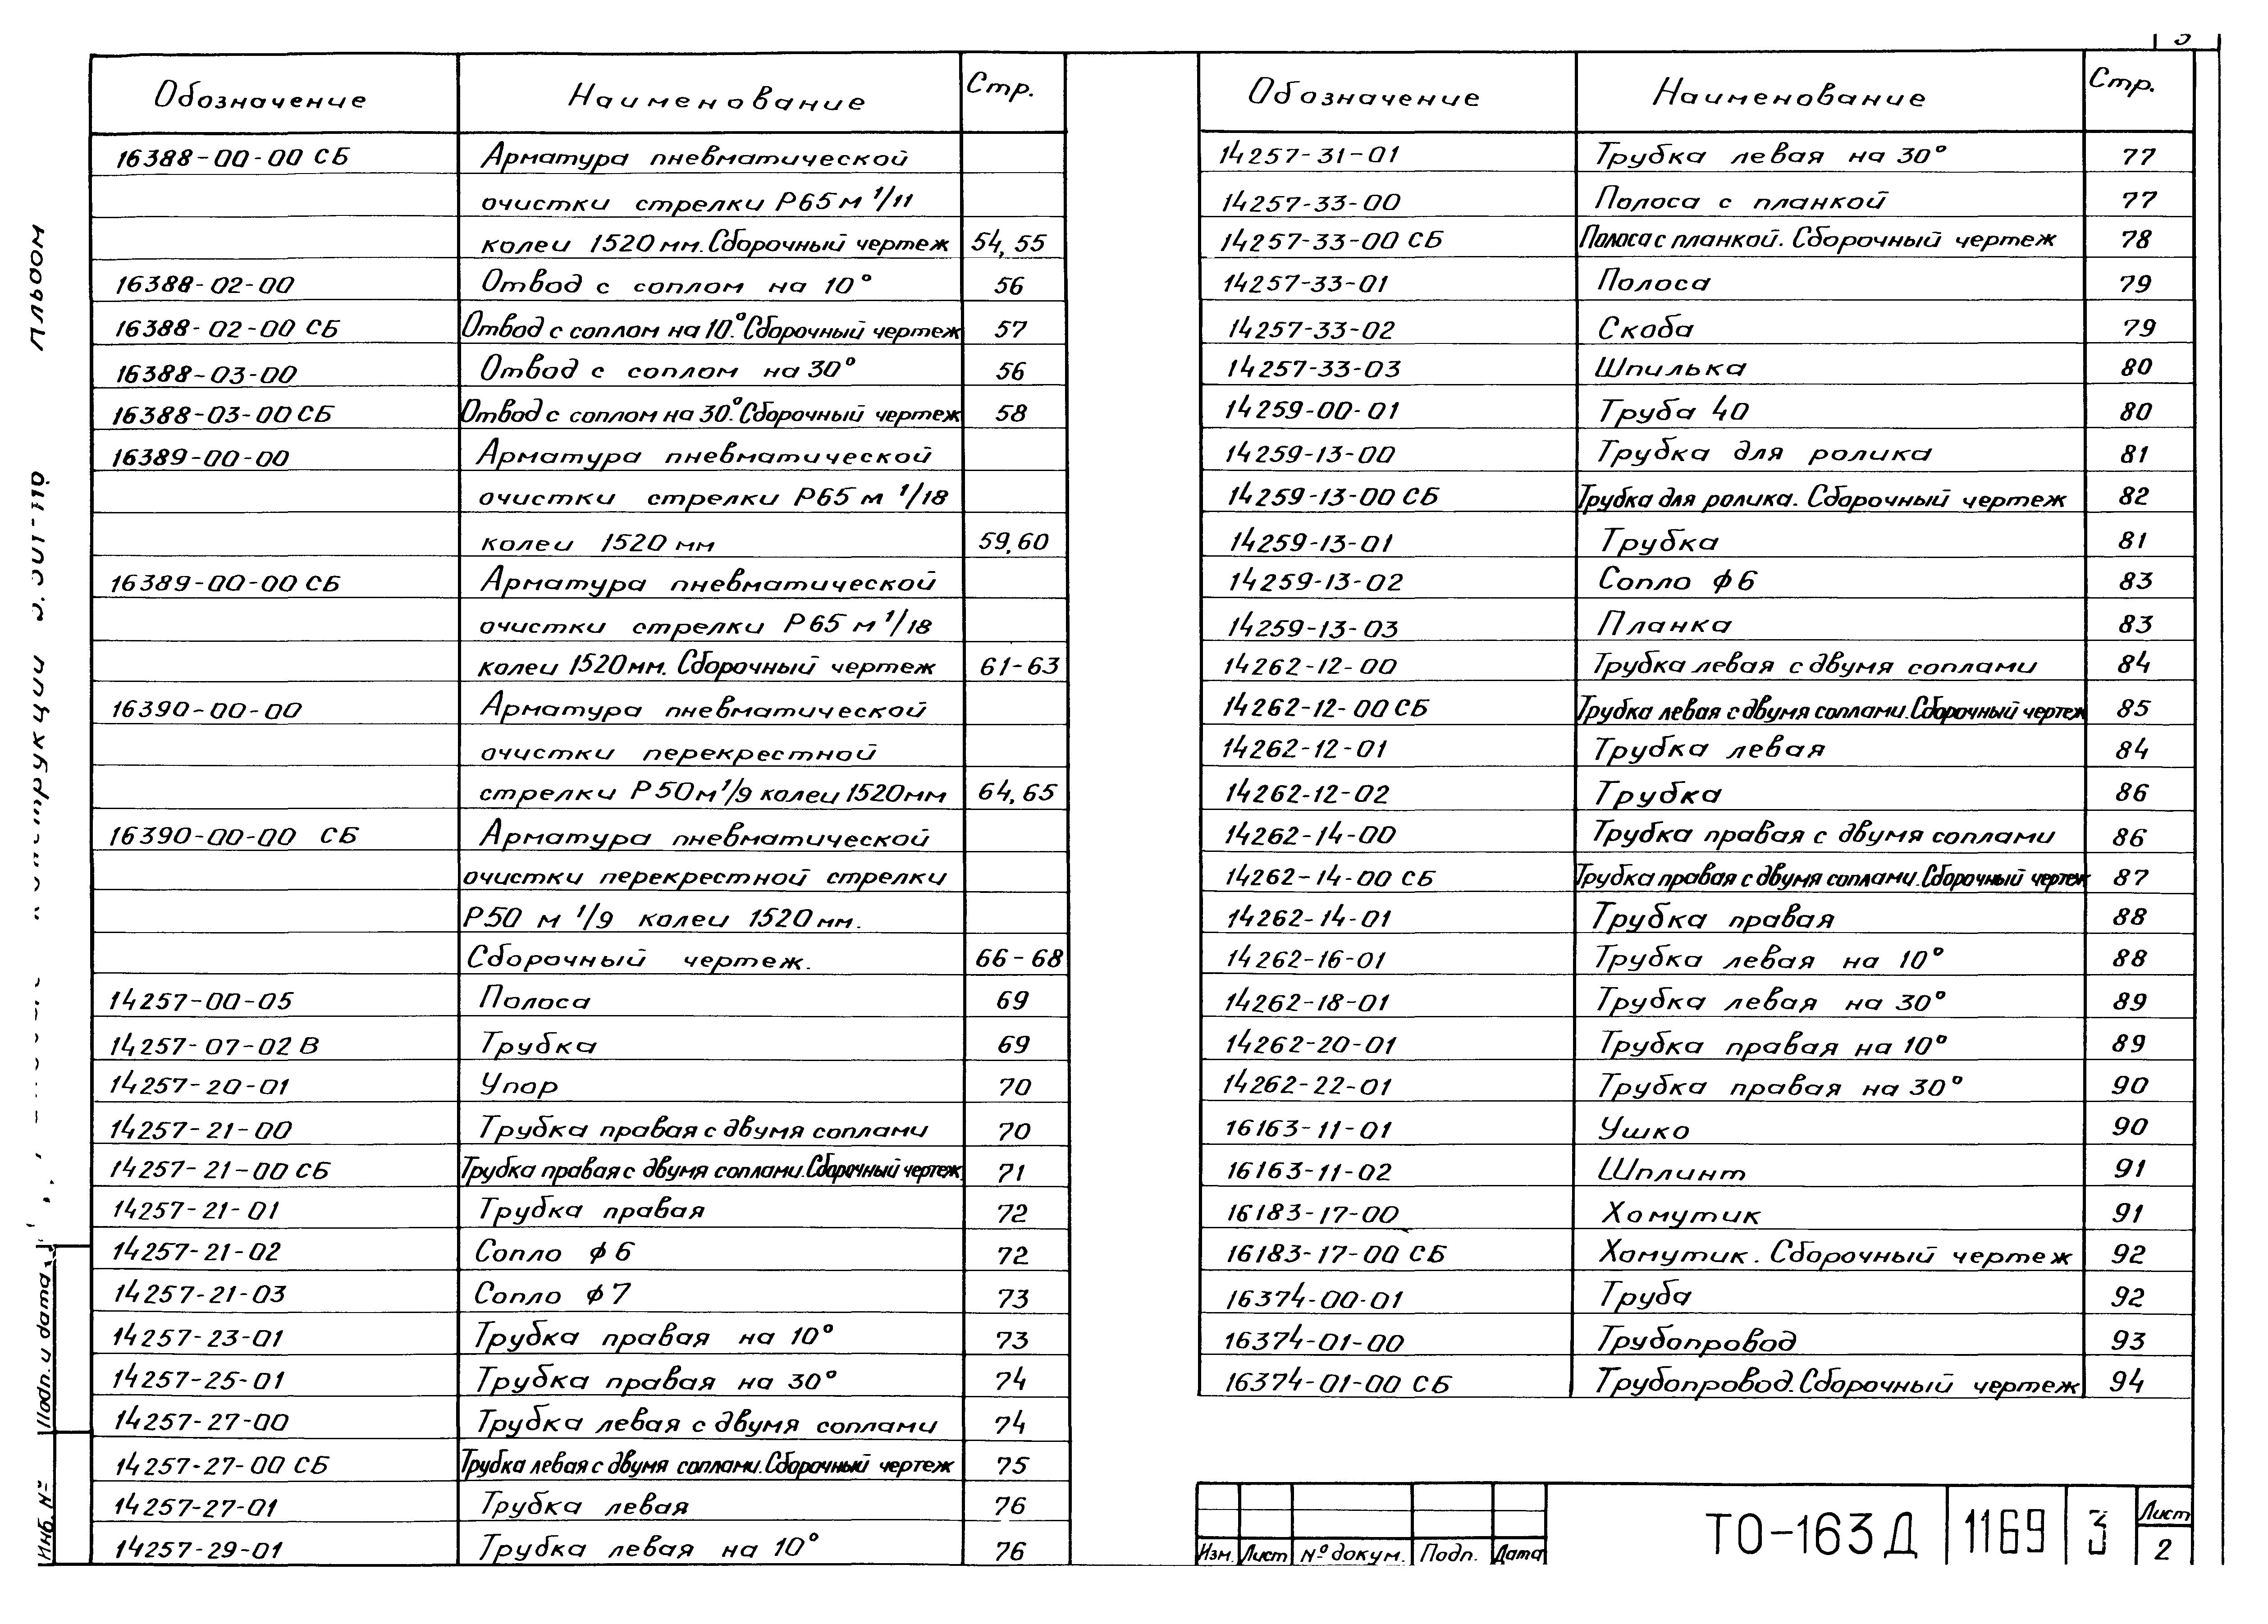 Обозначение Наименование Стр.
16388-00-00 СБ Арматура пневматической
очистки стрелки Р65 м 1/11
колеи 1520 мм. Сборочный чертеж 54, 55
16388-02-00 Отвод с соплом на 10° 56
16388-02-00 СБ Отвод с соплом на 10°. Сборочный чертеж 57
16388-03-00 Отвод с соплом на 30° 56
16388-03-00 СБ Отвод с соплом на 30°. Сборочный чертеж 58
16389-00-00 Арматура пневматической
очистки стрелки Р65 м 1/18
колеи 1520 мм 59, 60
16389-00-00 СБ Арматура пневматической
очистки стрелки Р65 м 1/18
колеи 1520мм. Сборочный чертеж 61-63
16390-00-00 Арматура пневматической
очистки перекрестной
стрелки Р50м 1/9 колеи 1520мм 64, 65
16390-00-00 СБ Арматура пневматической
очистки перекрестной стрелки
Р50 м 1/9 колеи 1520 мм.
Сборочный чертеж. 66-68
14257-00-05 Полоса 69
14257-07-02 В Трубка 69
14257-20-01 Упор 70
14257-21-00 Трубка правая с двумя соплами 70
14257-21-00 СБ Трубка правая с двумя соплами. Сборочный чертеж 71
14257-21-01 Трубка правая 72
14257-21-02 Сопло ф 6 72
14257-21-03 Сопло ф 7 73
14257-23-01 Трубка правая на 10° 73
14257-25-01 Трубка правая на 30° 74
14257-27-00 Трубка левая с двумя соплами 74
14257-27-00 СБ Трубка левая с двумя соплами. Сборочный чертеж 75
14257-27-01 Трубка левая 76
14257-29-01 Трубка левая на 10° 76
Обозначение Наименование Стр.
14257-31-01 Трубка левая на 30° 77
14257-33-00 Полоса с планкой 77
14257-33-00 СБ Полоса с планкой. Сборочный чертеж 78
14257-33-01 Полоса 79
14257-33-02 Скоба 79
14257-33-03 Шпилька 80
14259-00-01 Труба 40 80
14259-13-00 Трубка для ролика 81
14259-13-00 СБ Трубка для ролика. Сборочный чертеж 82
14259-13-01 Трубка 81
14259-13-02 Сопло ф 6 83
14259-13-03 Планка 83
14262-12-00 Трубка левая с двумя соплами 84
14262-12-00 СБ Трубка левая с двумя соплами. Сборочный чертеж 85
14262-12-01 Трубка левая 84
14262-12-02 Трубка 86
14262-14-00 Трубка правая с двумя соплами 86
14262-14-00 СБ Трубка правая с двумя соплами. Сборочный чертеж 87
14262-14-01 Трубка правая 88
14262-16-01 Трубка левая на 10° 88
14262-18-01 Трубка левая на 30° 89
14262-20-01 Трубка правая на 10° 89
14262-22-01 Трубка правая на 30° 90
16163-11-01 Ушко 90
16163-11-02 Шплинт 91
16183-17-00 Хомутик 91
16183-17-00 СБ Хомутик. Сборочный чертеж 92
16374-00-01 Труба 92
16374-01-00 Трубопровод 93
16374-01-00 СБ Трубопровод. Сборочный чертеж 94
Изм. Лист № докум. Подп. Дата
ТО-163 Д 1169 3 Лист 2
Альбом
Подп. и дата
Инв. №